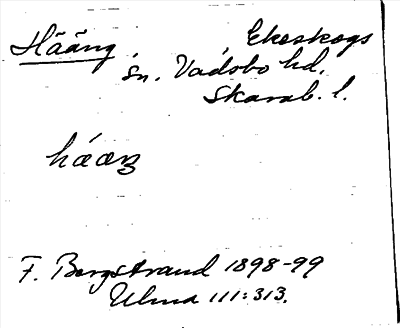 Hääng, Ekeskogs
sn. Vadsbo hd.
Skarab. l.
F. Bergstrand 1898-99
Ulma 111:313.